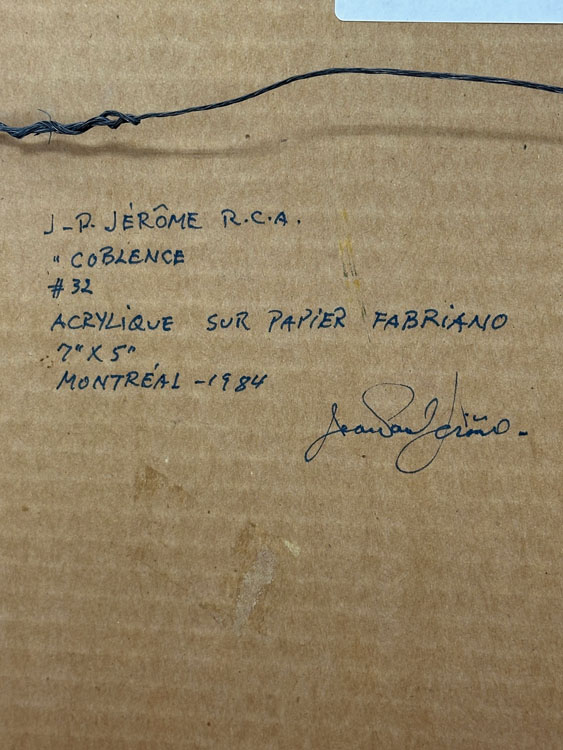 J-P. JÉRÔME R.C.A.
" COBLENCE
#32
ACRYLIQUE SUR PAPIER FABRIANO
7" X 5"
MONTRÉAL - 1984
Jean Paul Jérôme -